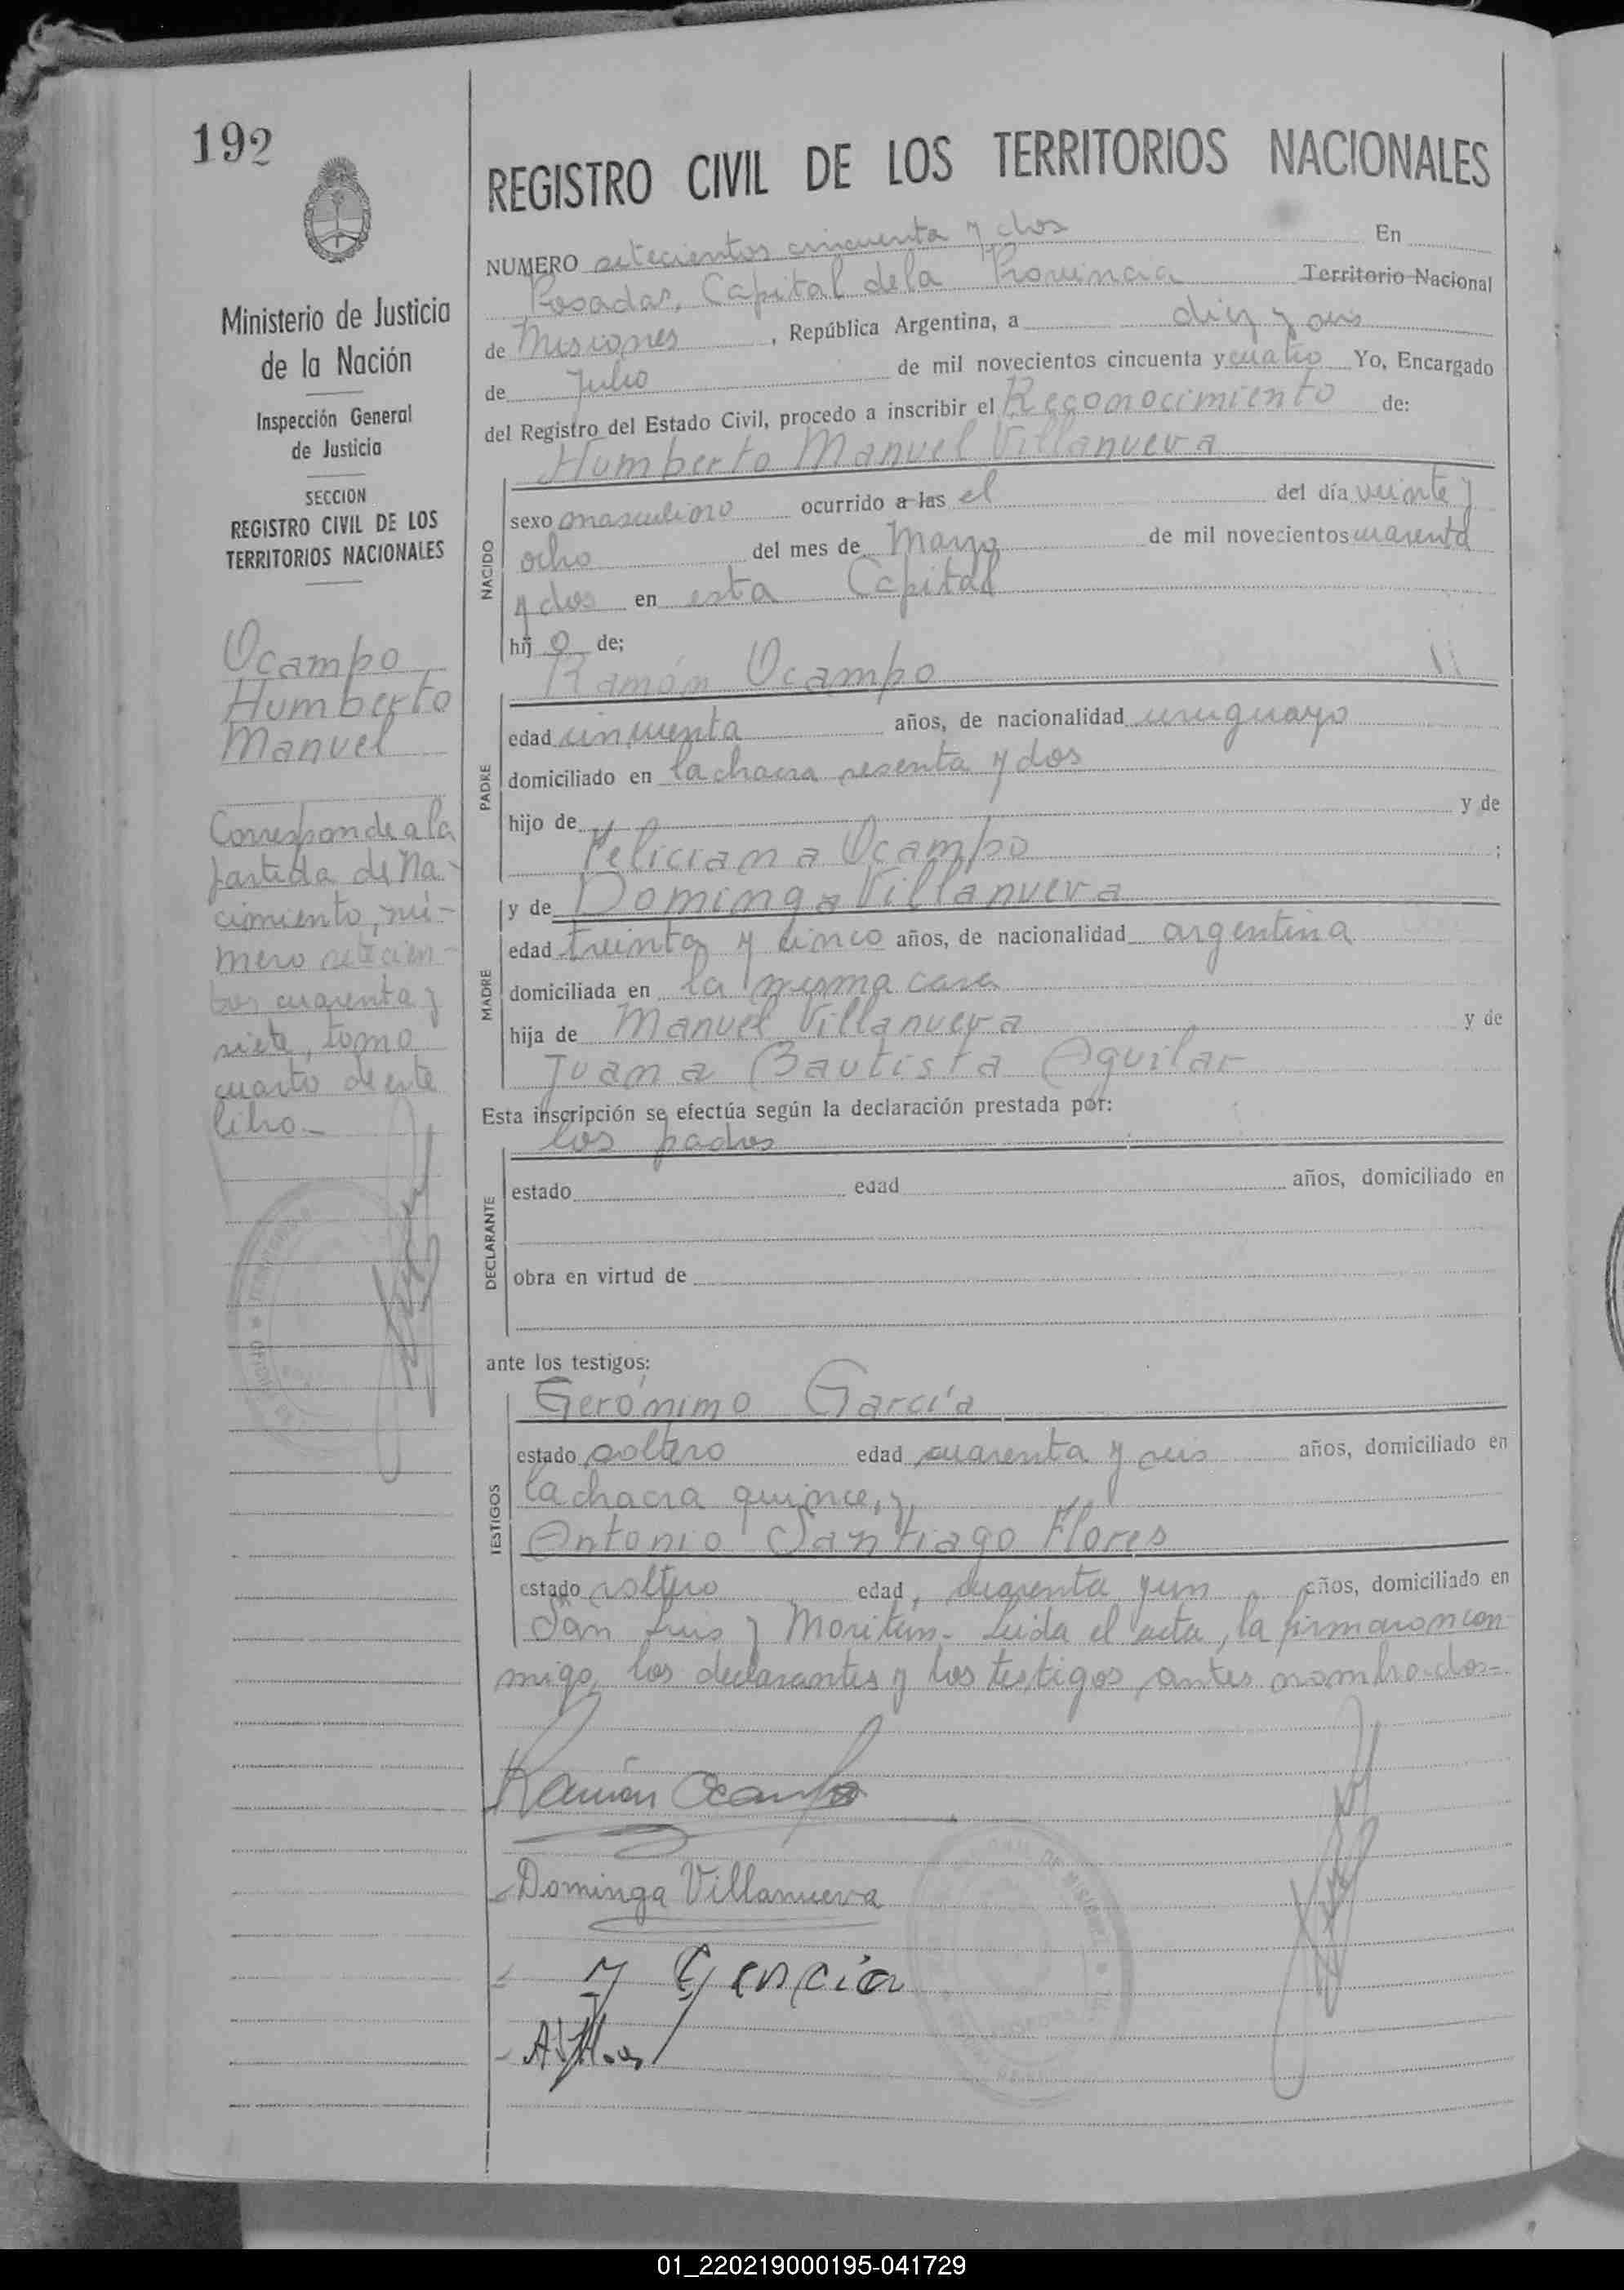 192
Ministerio de Justicia
de la Nación
Inspección General
de Justicia
SECCION
REGISTRO CIVIL DE LOS
TERRITORIOS NACIONALES
Ocampo
Humberto
Manuel
Corresponde a la
partida de Na-
cimiento, nú-
mero setecien-
tos cuarenta y
siete, tomo
cuarto de este
libro.-
REGISTRO CIVIL DE LOS TERRITORIOS NACIONALES
NUMERO setecientos cincuenta y dos En
Posadas, Capital de la Provincia Territorio Nacional
de Misiones, República Argentina, a diez y seis
de Julio de mil novecientos cincuenta y cuatro Yo, Encargado
del Registro del Estado Civil, procedo a inscribir el Reconocimiento de:
Humberto Manuel Villanueva
NACIDO
sexo masculino ocurrido a las el del día veinte y
ocho del mes de Marzo de mil novecientos cuarenta
y dos en esta Capital
hij o de;
Ramón Ocampo
PADRE
edad cincuenta años, de nacionalidad uruguayo
domiciliado en la chacra sesenta y dos
hijo de y de
Feliciana Ocampo ;
y de Dominga Villanueva
MADRE
edad treinta y cinco años, de nacionalidad argentina
domiciliada en la misma casa
hija de Manuel Villanueva y de
Juana Bautista Aguilar
Esta inscripción se efectúa según la declaración prestada por:
los padres
DECLARANTE
estado edad años, domiciliado en
obra en virtud de
ante los testigos:
Gerónimo García
TESTIGOS
estado soltero edad cuarenta y seis años, domiciliado en
la chacra quince, y,
Antonio Santiago Flores
estado soltero edad, cuarenta y un años, domiciliado en
San Luis y Moritán.- Leída el acta, la firmaron con
migo, los declarantes y los testigos, antes nombrados.-
Ramón Ocampo
Dominga Villanueva
García
01_220219000195-041729